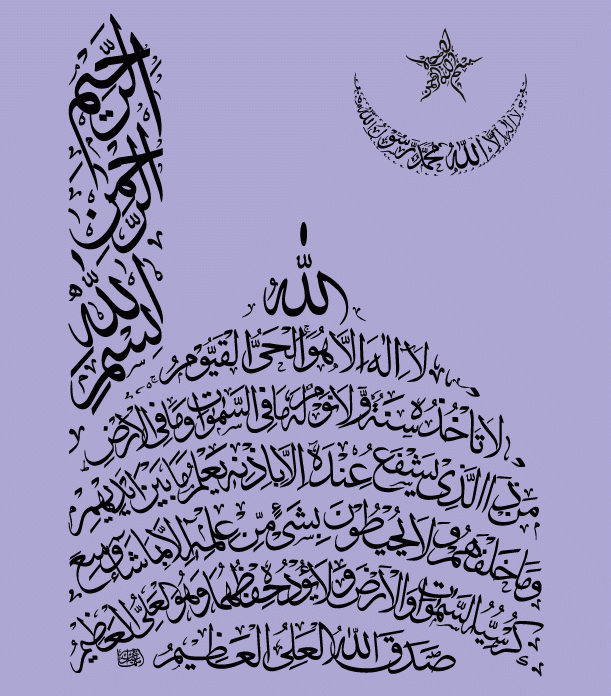 بسم الله الرحمن الرحيم
لا اله الا الله محمد رسول الله
الله
لا اله الا هو الحي القيوم
لا تاخذه سنة ولا نوم له ما في السموت وما في الارض
من ذا الذي يشفع عنده الا باذنه يعلم ما بين ايديهم
وما خلفهم ولا يحيطون بشيء من علمه الا بما شاء وسع
كرسيه السموت والارض ولا يؤده حفظهما وهو العلي العظيم
صدق الله العلي العظيم